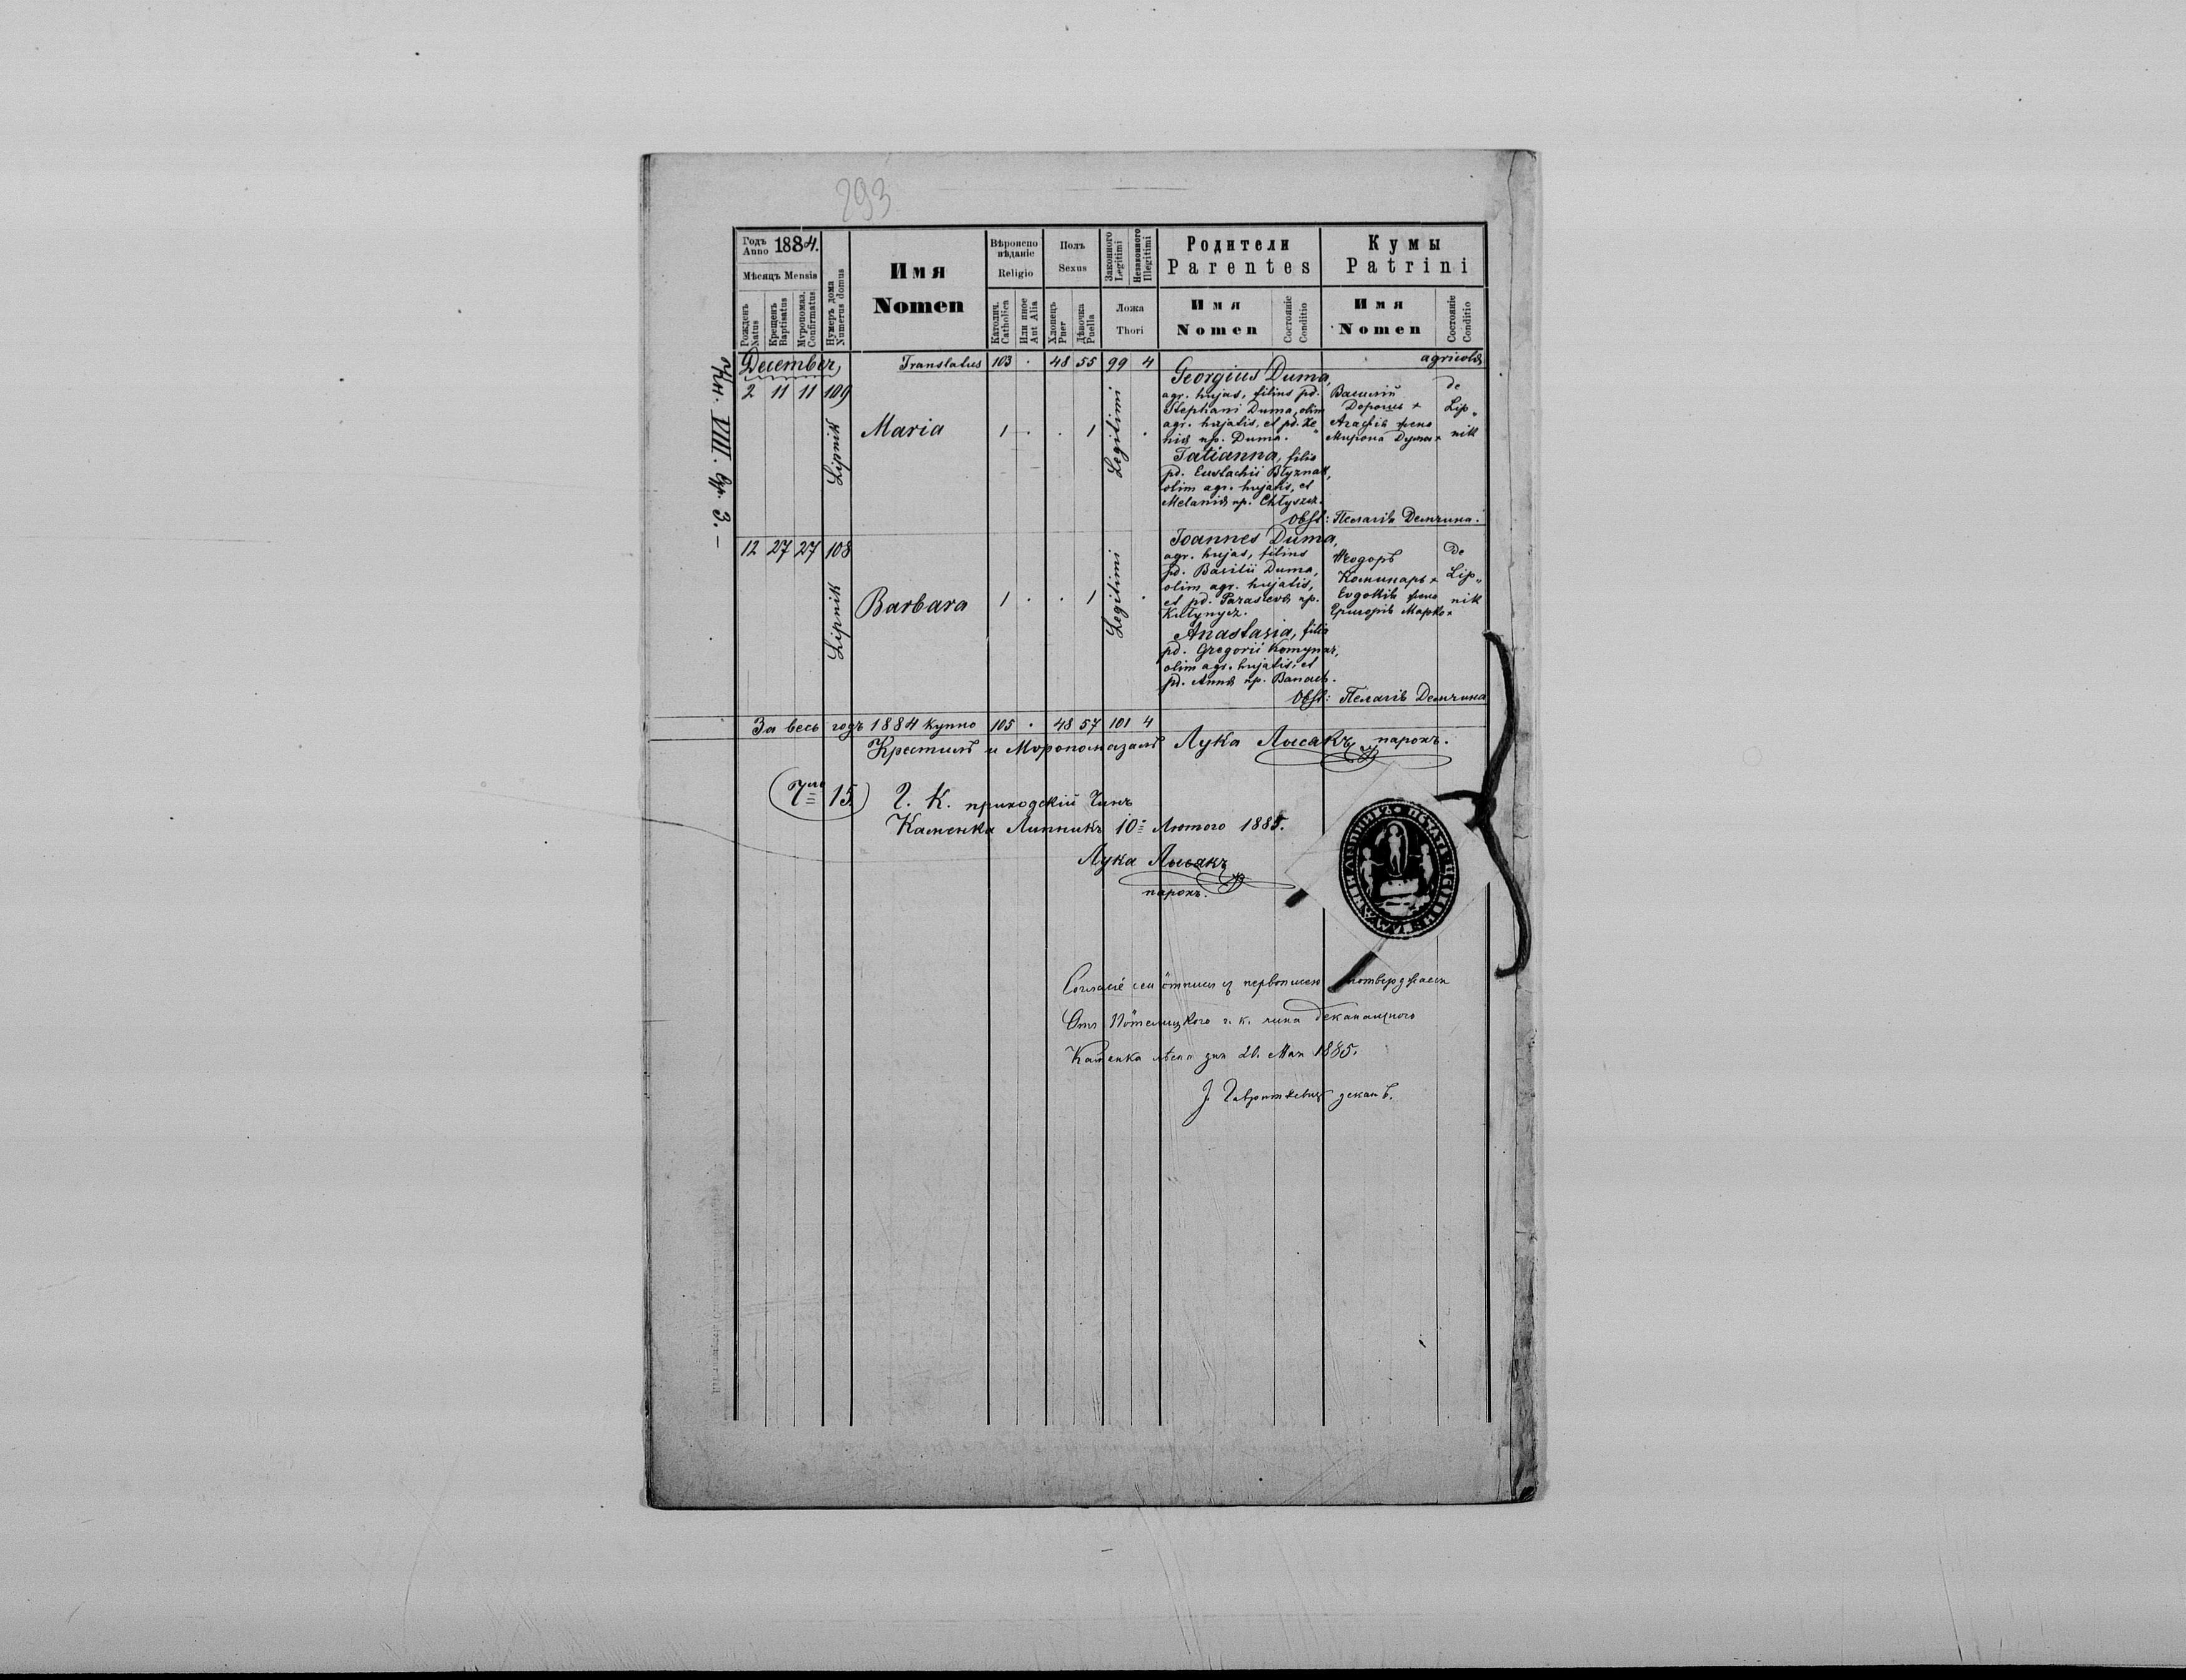 293
Годъ Anno 1884.
Мѣсяцъ Mensis
Рожденъ Natus
Крещенъ Baptisatus
Мѵропомаз. Confirmatus
Нумеръ дома Numerus domus
Имя
Nomen
Вѣроиспо
вѣданіе
Religio
Католич. Catholica
Или иное Aut Alia
Полъ
Sexus
Хлопецъ Puer
Дѣвочка Puella
Законного Legitimi
Незаконного Illegitimi
Ложа
Thori
Родители
Parentes
Имя
Nomen
Состояніе Conditio
Кумы
Patrini
Имя
Nomen
Состояніе Conditio
VIII. 3.
December, Translatus 103 · 48 55 99 4 agricolæ
2 11 11 109
Lipnik
Maria
1 · · 1 Legitimi ·
Georgius Duma,
agr. hujas, filius pd.
Stephani Duma, olim
agr. hujatis, et pd. Xe„
niæ np. Duma.
Tatianna, filia
pd. Eustachii Błyznak,
olim agr. hujatis, et
Melaniæ np. Chłyszcz.
Василій
Дорошъ +
Агафія жена
Мирона Дума +
de
Lip„
nik
Obst: Пелагія Демчина.
12 27 27 108
Lipnik
Barbara
1 · · 1 Legitimi ·
Joannes Duma,
agr. hujas, filius
pd. Basilii Duma,
olim agr. hujatis,
et pd. Parasceva np.
Kułynycz.
Anastasia, filia
pd. Gregorii Komynar,
olim agr. hujatis, et
pd. Annæ np. Banach.
Ѳеодоръ
Коминаръ +
Евдокія жена
Григорія Марко +
De
Lip„
nik
Obst: Пелагія Демчина
За весь годъ 1884 купно 105 · 48 57 101 4
Крестилъ и Мѵропомазалъ Лука Лысакъ, парохъ.
15. Г. К. приходскій Чинъ
Каменка Липникъ 10 Лютого 1885.
Лука Лысакъ
парохъ.
первописею потверджаеся
Отъ г. к. чина деканального
Каменка дня 20. Мая 1885.
деканъ.